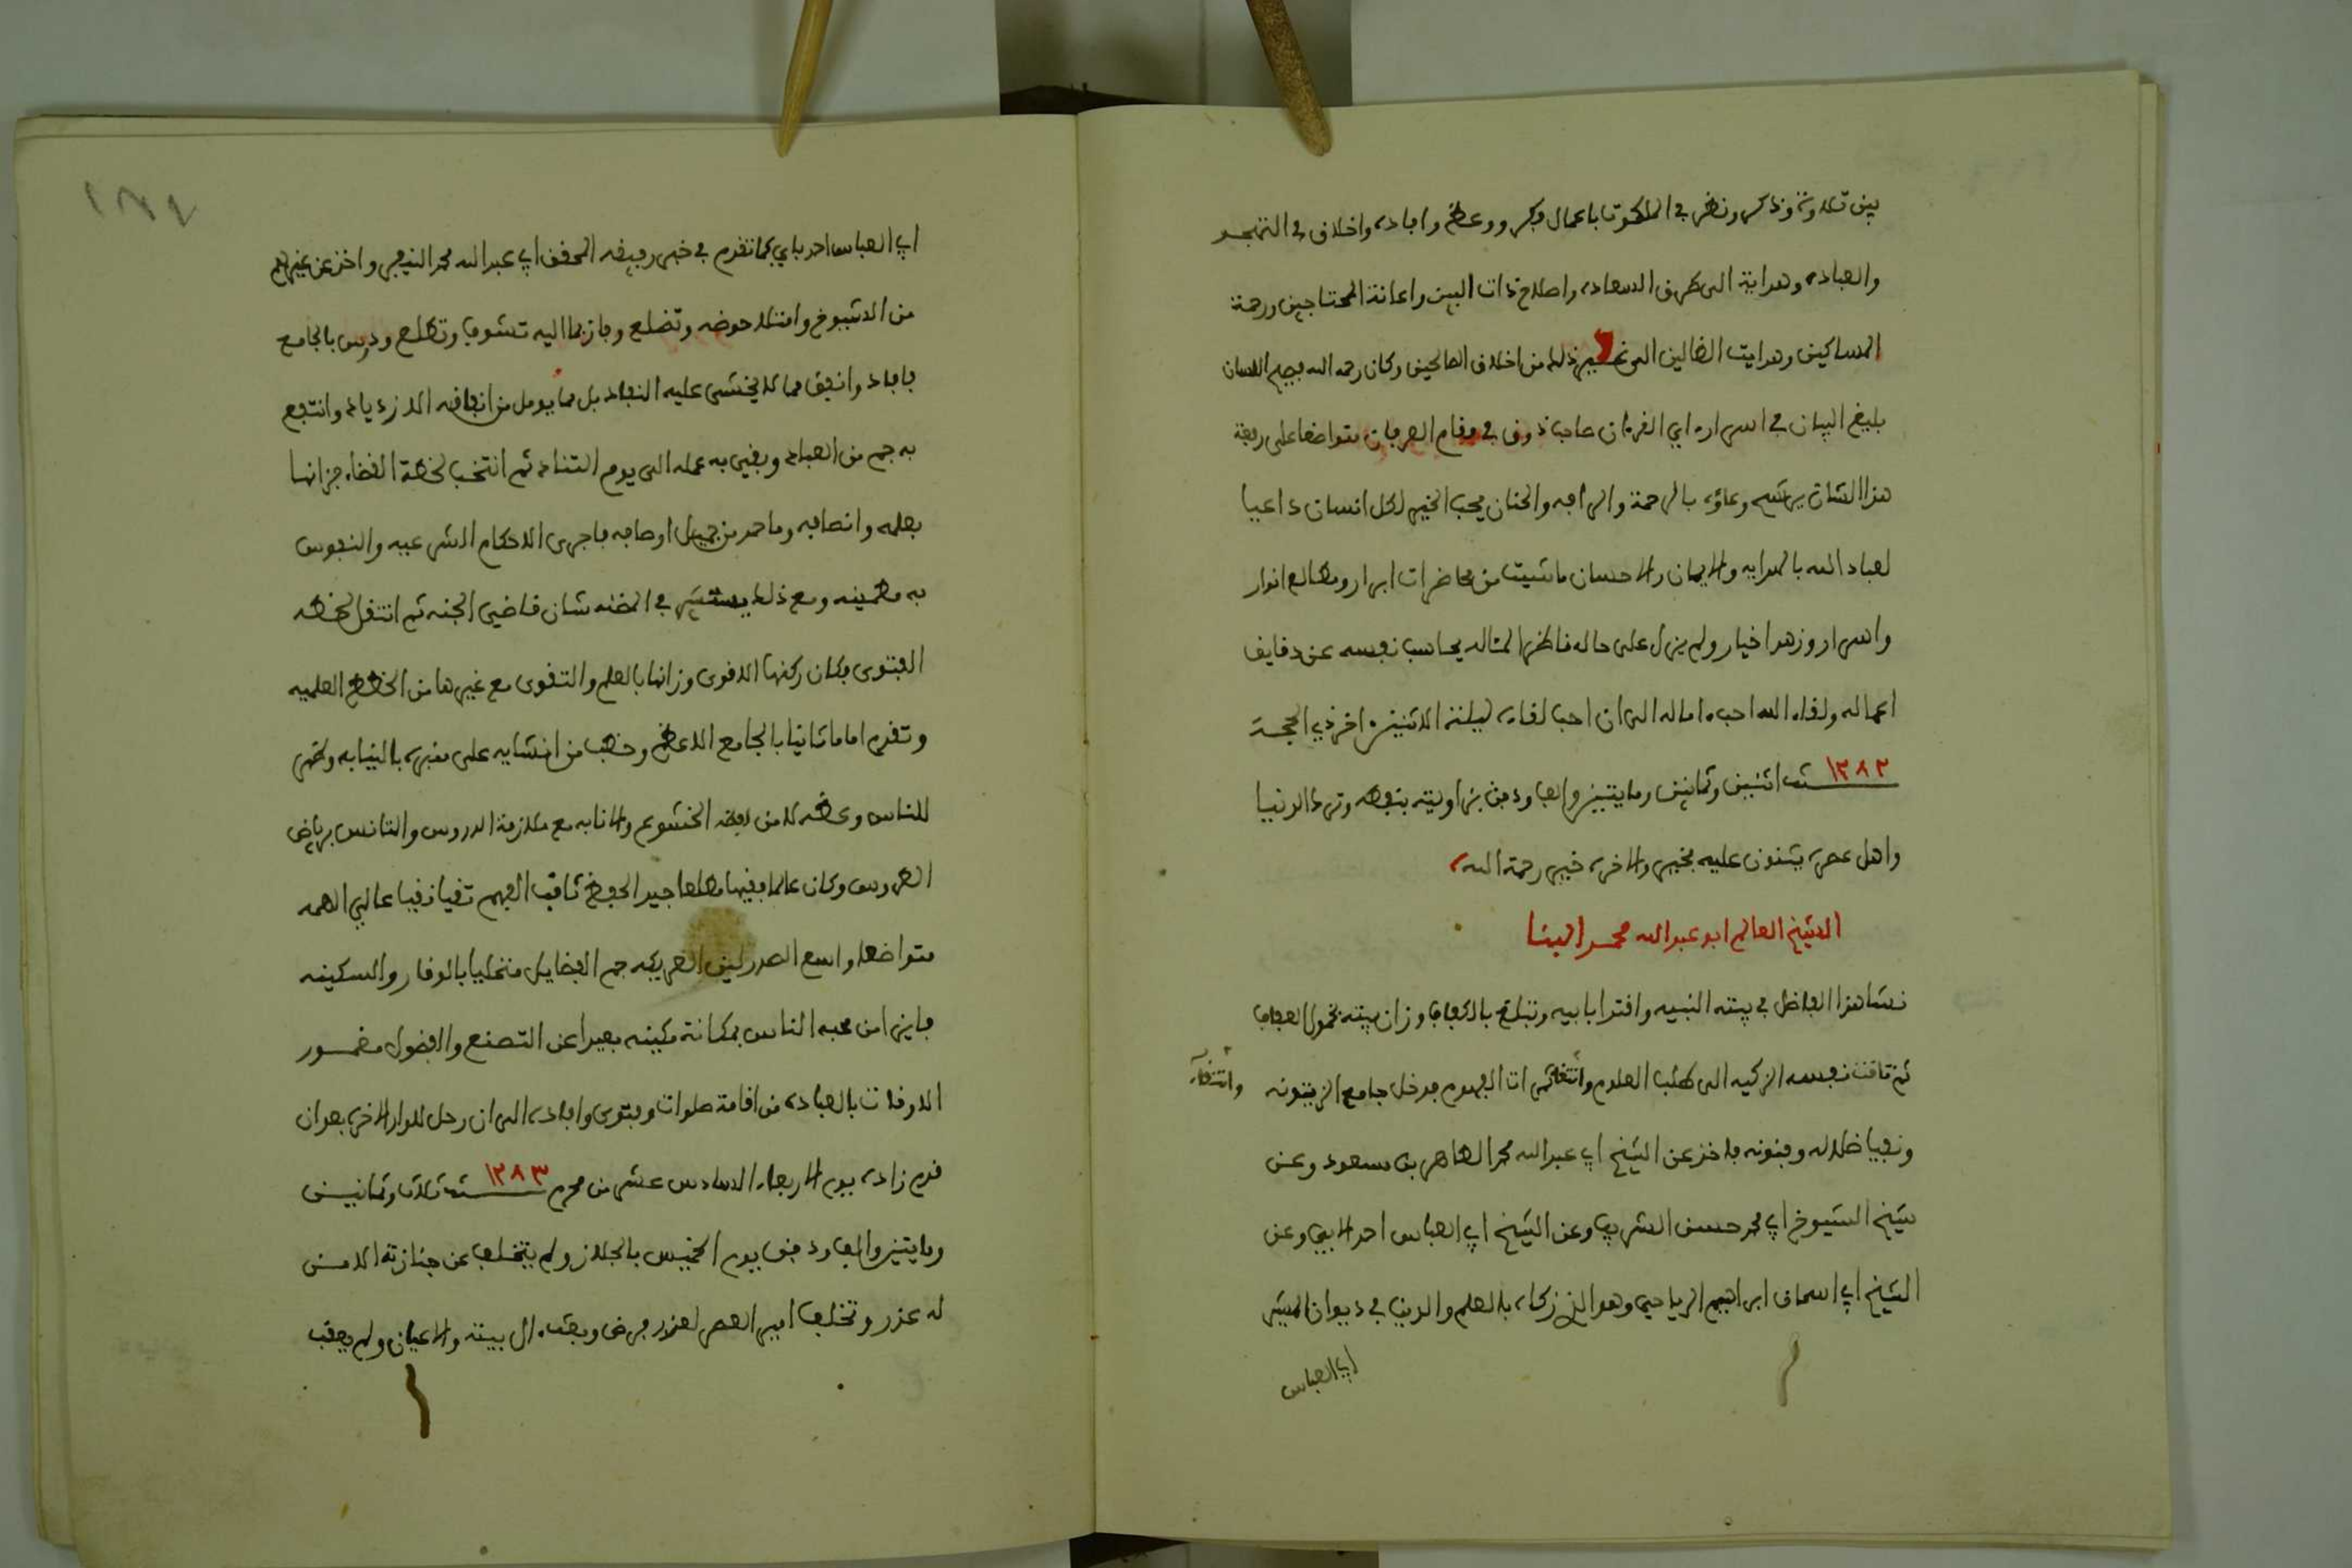 بين تلاوة وذكر ونظر في الملكوت باعمال فكر ووعظ وافادة واخلاق في التهجد
والعبادة وهداية الى طريق السعادة واصلاح ذات البين واعانة المحتاجين ورحمة
المساكين وهدايت الضالين الى غير ذلك من اخلاق الصالحين وكان رحمه الله فصيح اللسان
بليغ البيان في اسرار اي القرءان صاحب ذوق في مقام العرفان متواضعا على رفعة
هذا الشان يرشح وعاؤه بالرحمة والرافه والحنان يحب الخير لكل انسان داعيا
لعباد الله بالهدايه والايمان والاحسان ماشيت من محاضرات ابرار ومطالع انوار
واسرار وزهد اخيار ولم يزل على حاله ناظرا لمثاله يحاسب نفسه عن دقايق
اعماله ولقاء الله احب ءاماله الى ان احب لقاءه ليلة الاثنين اخر ذي الحجة
١٢٨٢ سنة اثنين وثمانين ومايتين والف ودفن بزاويته بنفطه وترك الدنيا
واهل عصره يثنون عليه بخير والاخرة خير رحمة الله
الشيخ العالم ابو عبد الله محمد البنا
نشا هذا الفاضل في بيته النبيه واقتدا بابيه وتبلغ بالكفاف وزان بيته بخمول العفاف
ثم تاقت نفسه الزكيه الى طلب العلوم وانتقا ثمرات الفهوم فدخل جامع الزيتونه
وانتقاء
وتفيا ظلاله وفنونه فاخذ عن الشيخ ابي عبد الله محمد الطاهر بن مسعود وعن
شيخ الشيوخ ابي محمد حسن الشريف وعن الشيخ ابي العباس احمد الابي وعن
الشيخ ابي اسحاق ابراهيم الرياحي وهو الذي زكاه بالعلم والدين في ديوان المشير
ابي العباس
١٨٧
ابي العباس احمد باي كما تقدم في خبر رفيقه المحقق ابي عبد الله محمد النيفر واخذ عن غيرهم
من الشيوخ وامتلا حوضه وتضلع وفاز بما اليه تشوف وتطلع ودرس بالجامع
فافاد وانفق مما لا يخشى عليه النفاد بل مما يومل من انفاقه الازدياد وانتفع
به جم من العباد وبقي به عمله الى يوم التناد ثم انتخب لخطة القضاء فزانها
بعلمه وانصافه وما حمد من جميل اوصافه فاجرى الاحكام الشرعيه والنفوس
به مطمينه ومع ذلك في المظنه شان قاضي الجنه ثم انتقل لخطه
الفتوى فكان ركنها الاقوى وزانها بالعلم والتقوى مع غيرها من الخطط العلميه
وتقدم اماما ثانيا بالجامع الاعظم وخطب من انشايه على منبره بالنيابه وظهر
للناس وعظه لا من لفظه الخشوع والانابه مع ملازمة الدروس والتانس برياض
الطروس وكان عالما فقيها مطلعا جيد الحفظ ثاقب الفهم تقيا نقيا عالي الهمه
متواضعا واسع الصدر لين العريكه جم الفضايل متحليا بالوقار والسكينه
فايزا من محبه الناس بمكانة مكينه بعيدا عن التصنع والفضول مغمور
الاوقات بالعباده من اقامة صلوات وفتوى وافاده الى ان رحل للدار الاخرى بعد ان
قدم زاده يوم الاربعاء السادس عشر من محرم سنة ١٢٨٣ ثلاث وثمانين
ومايتين والف ودفن يوم الخميس بالجلاز ولم يتخلف عن جنازته الا من
له عذر وتخلف امير العصر لعذر مرض وبعث ءال بيته والاعيان ولم يعقب